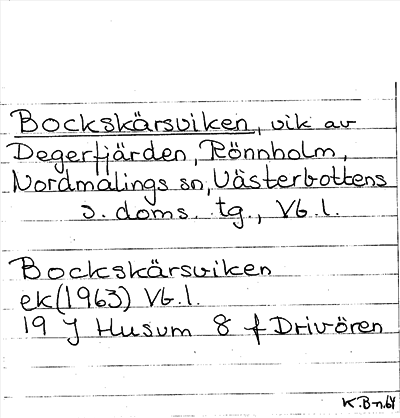 Bockskärsviken, vik av
Degerfjärden, Rönnholm,
Nordmalings sn, Västerbottens
s. doms. tg., Vb. l.
Bockskärsviken
ek (1963) Vb. l.
19 J Husum 8 f Drivören
K.B-n.64